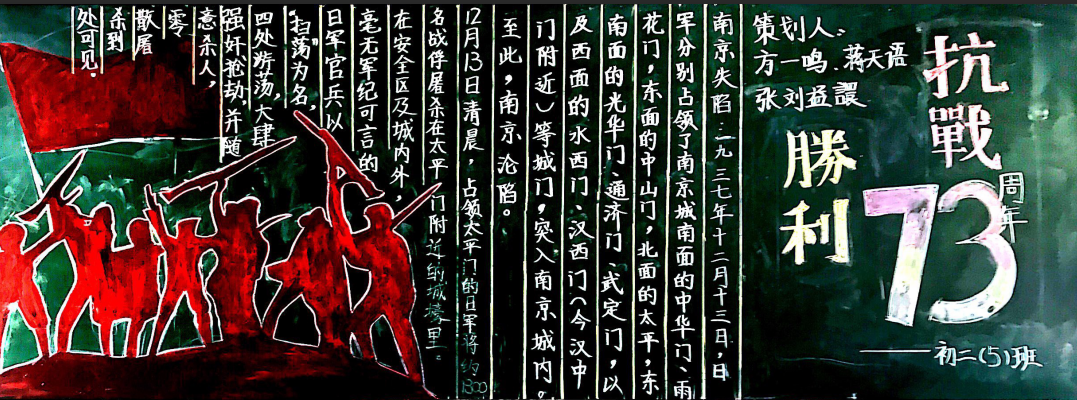 抗戰
勝利
73
周年
——初二(5)班
策划人:
方一鸣.蒋天语
张刘益譞
南京失陷:一九三七年十二月十三日,日
军分别占领了南京城南面的中华门、雨
花门,东面的中山门,北面的太平,东
南面的光华门、通济门、武定门,以
及西面的水西门、汉西门(今汉中
门附近)等城门,突入南京城内。
至此,南京沦陷。
12月13日清晨,占领太平门的日军将约1300
名战俘屠杀在太平门附近的城壕里。
在安全区及城内外,
毫无军纪可言的
日军官兵以
“扫荡”为名,
四处游荡,大肆
强奸抢劫,并随
意杀人,
零
散屠
杀到
处可见.